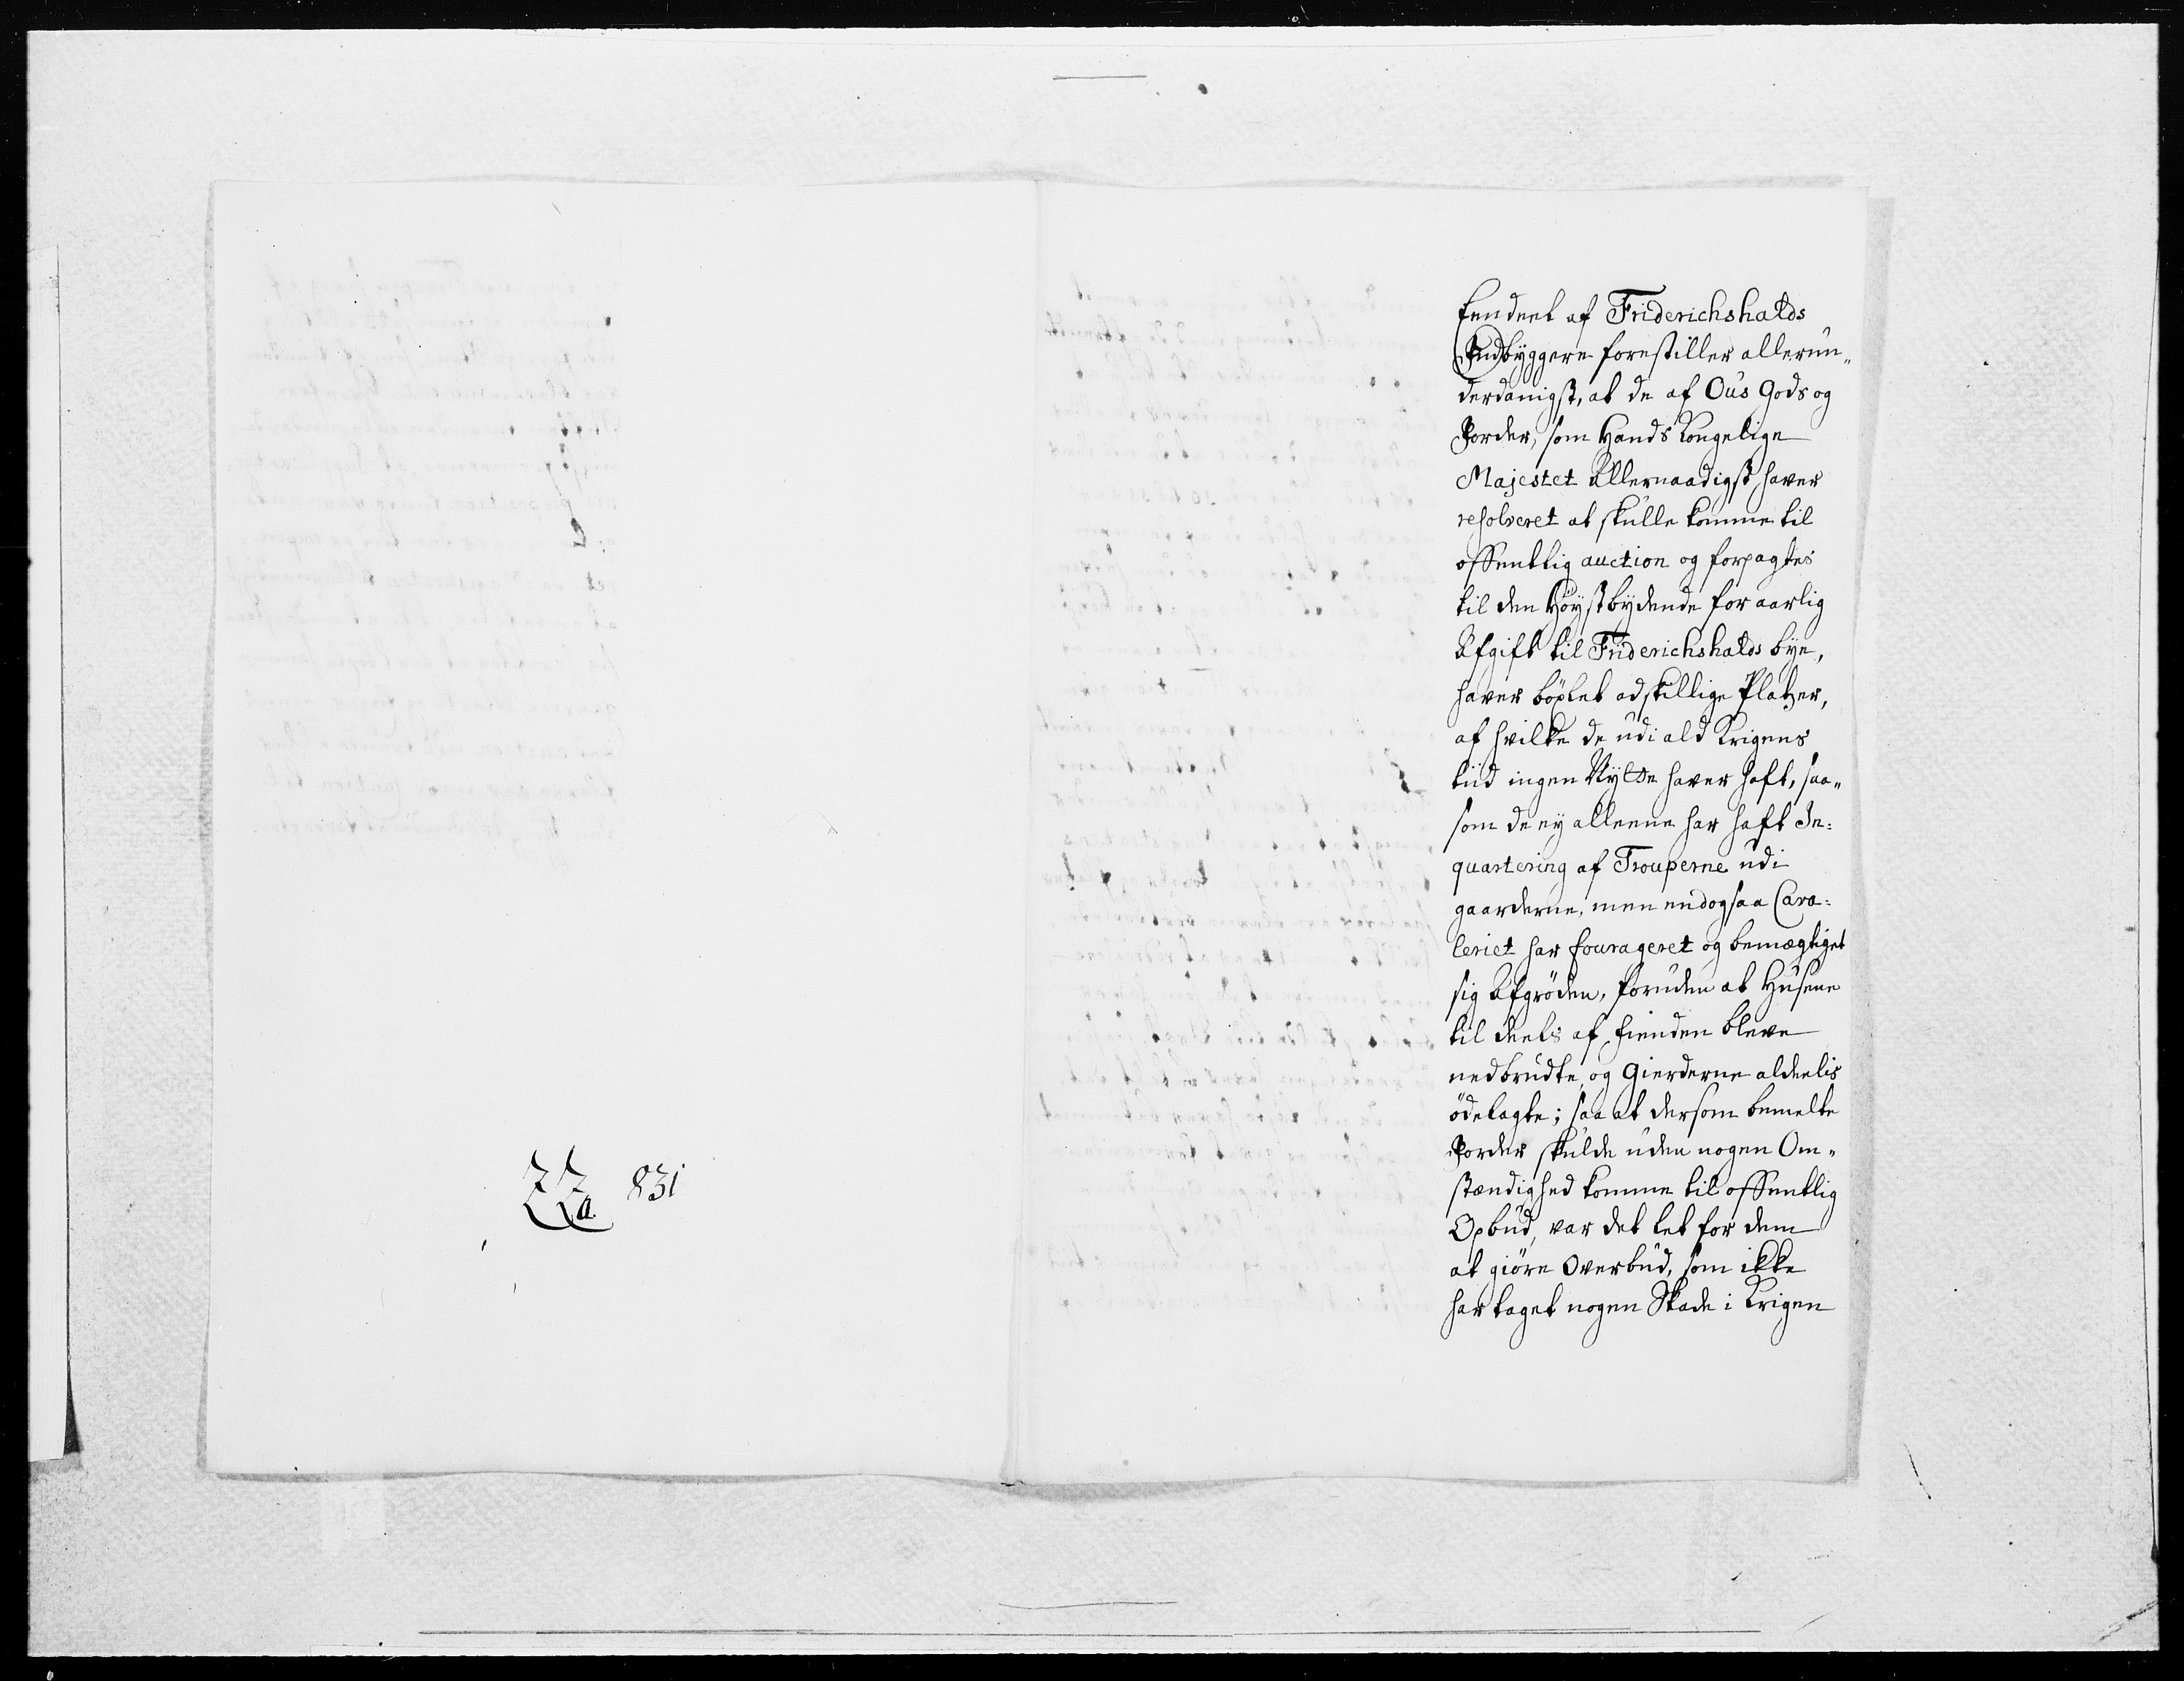 ZZa. 831
Eendeel af Friderichshalds
Indbyggere forestiller allerun„
derdanigst, at de af Ous Gods og
Jorder, som Hands Kongelige
Majestet Allernaadigst haver
resolveret at skulle komme til
offentlig auction og forpagtes
til den Höystbydende for aarlig
Afgift til Friderichshalds bye,
haver böxlet adskillige Platzer,
af hvilke de udi ald Krigens
tiid ingen Nytte haver haft, saa„
som de ey alleene har haft In=
quartering af Trouperne udi
gaarderne, men endogsaa Cava=
leriet har fourageret og bemægtiget
sig Afgröden, foruden at Husene
til deels af Fienden bleve
nedbrudte, og Gierderne aldeelis
ödelagte; saa at dersom bemelte
Jorder skulde uden nogen Om„
stændighed komme til offentlig
Opbud, var det let for dem
at giöre Overbud, som ikke
har taget nogen Skade i Krigen